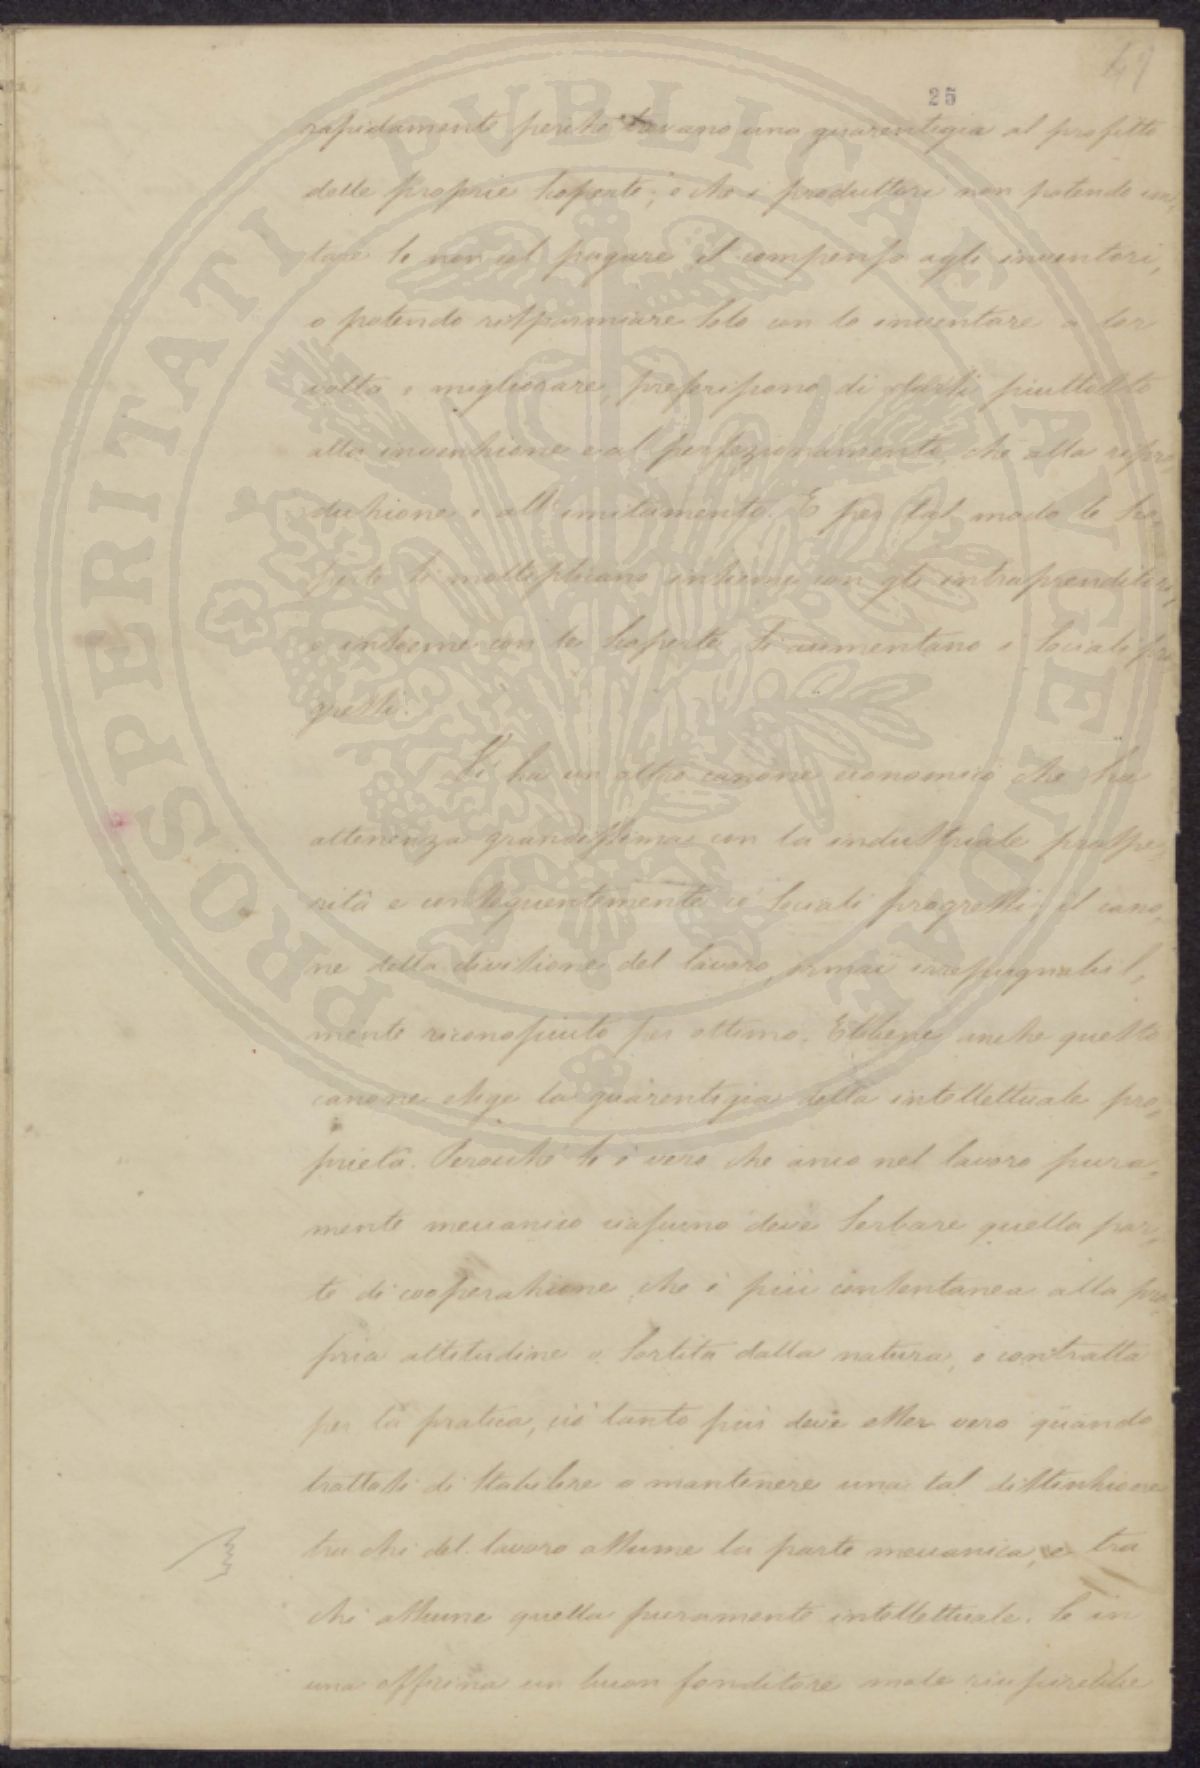 49
25
rapidamente perchè trovano una guarentigia al profitto
delle proprie scoperte; e che i produttori non potendo imi,
tare se non col pagare il compenso agli inventori,
o potendo risparmiare solo con lo inventare a lor
volta e migliorare, preferiscono di darsi piuttosto
alla invenzione e al perfezionamento, che alla ripro,
duzione e all'imitamento. E per tal modo le sco,
perte si moltiplicano insieme con gli intraprenditori,
e insieme con le scoperte si aumentano i sociali pro,
gressi.
Vi ha un altro canone economico che ha
attenenza grandissima con la industriale prospe,
rità e conseguentemente co' sociali progressi; il cano,
ne della divisione del lavoro, ormai irrepugnabil,
mente riconosciuto per ottimo. Ebbene anche questo
canone esige la guarentigia della intellettuale pro,
prietà. Perocchè se è vero che anco nel lavoro pura,
mente meccanico ciascuno deve serbare quella par,
te di cooperazione che è più consentanea alla pro,
pria attitudine o sortita dalla natura, o contratta
per la pratica, ciò tanto più deve esser vero quando
trattasi di stabilire e mantenere una tal distinzione
tra chi del lavoro assume la parte meccanica, e tra
chi assume quella puramente intellettuale. Se in
una officina un buon fonditore male riuscirebbe
PROSPERITATI PVBLICAE AVGENDAE